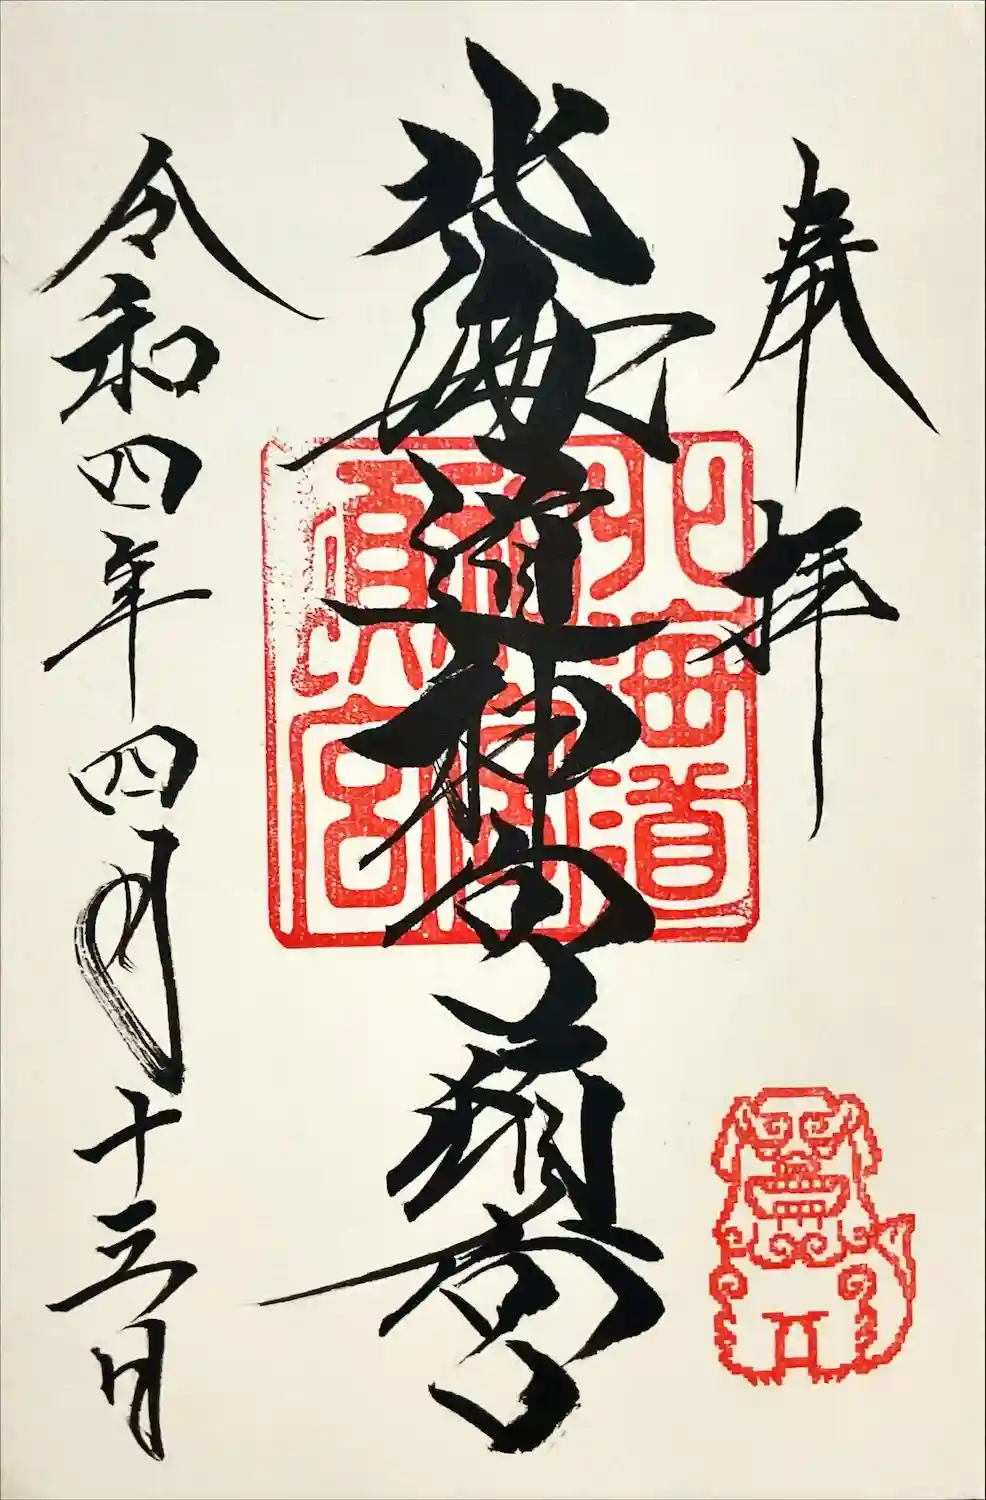 奉拝
北海道神宮頓宮
令和四年四月十三日
北海道
神宮
頓宮